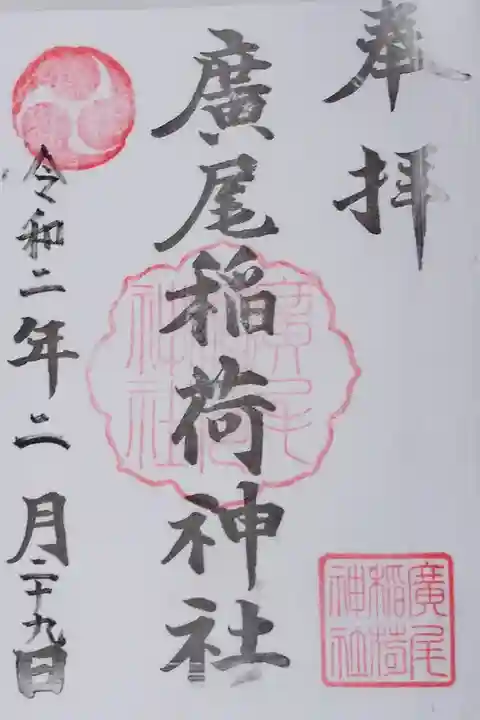 奉拝
廣尾稲荷神社
廣尾稲荷神社
廣尾稲荷神社
令和二年二月二十九日